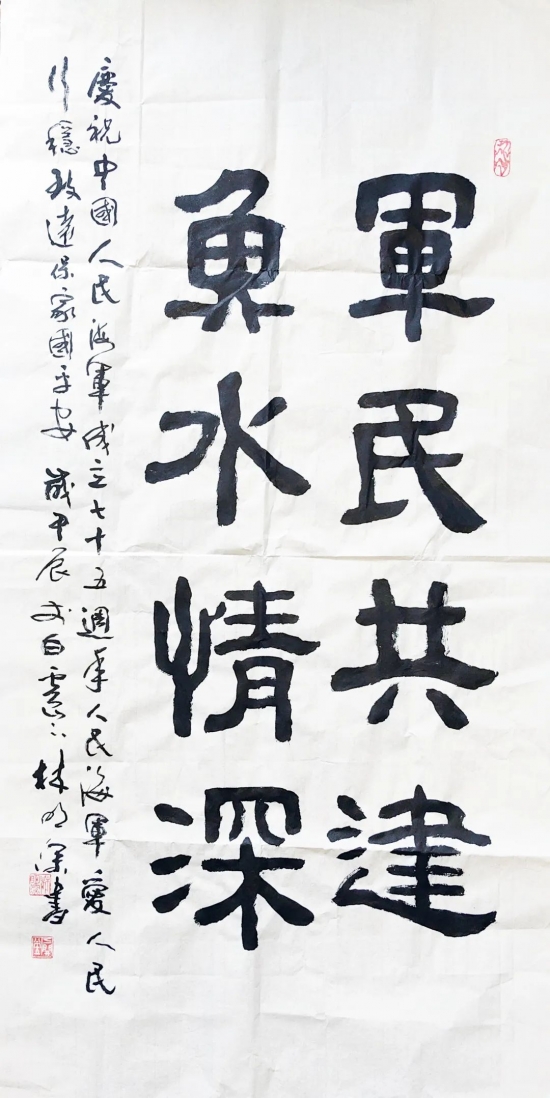 軍民共建
魚水情深
慶祝中國人民海軍成立七十五週年人民海軍愛人民
行穩致遠保家國平安 歲甲辰 林 書